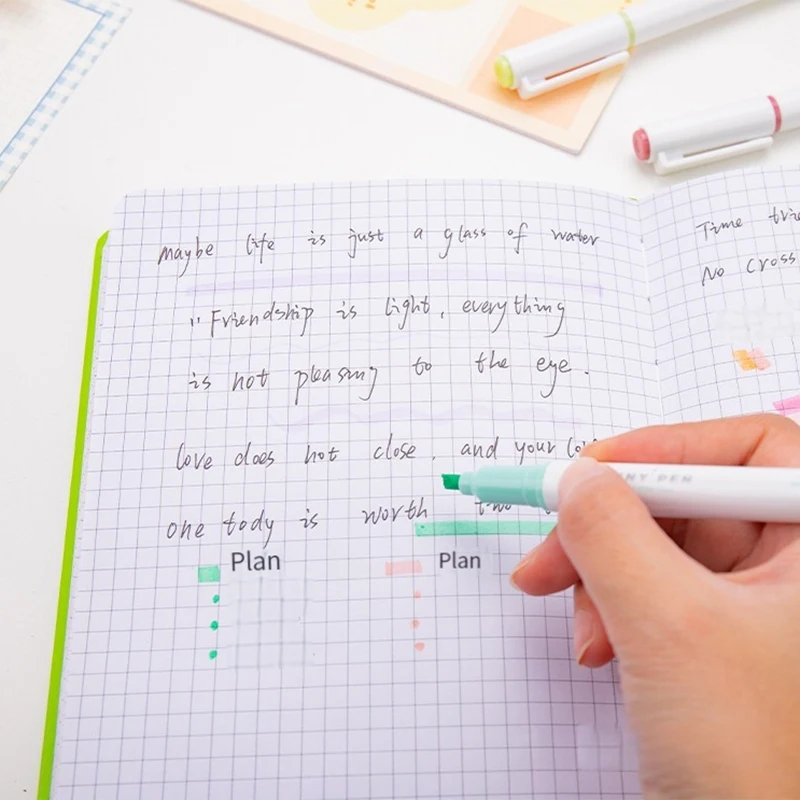 maybe life is just a glass of water
"Friendship is light, everything
is not pleasing to the eye.
love does not close, and your
one tody is worth two
Plan
Plan
Time
No cross
PEN